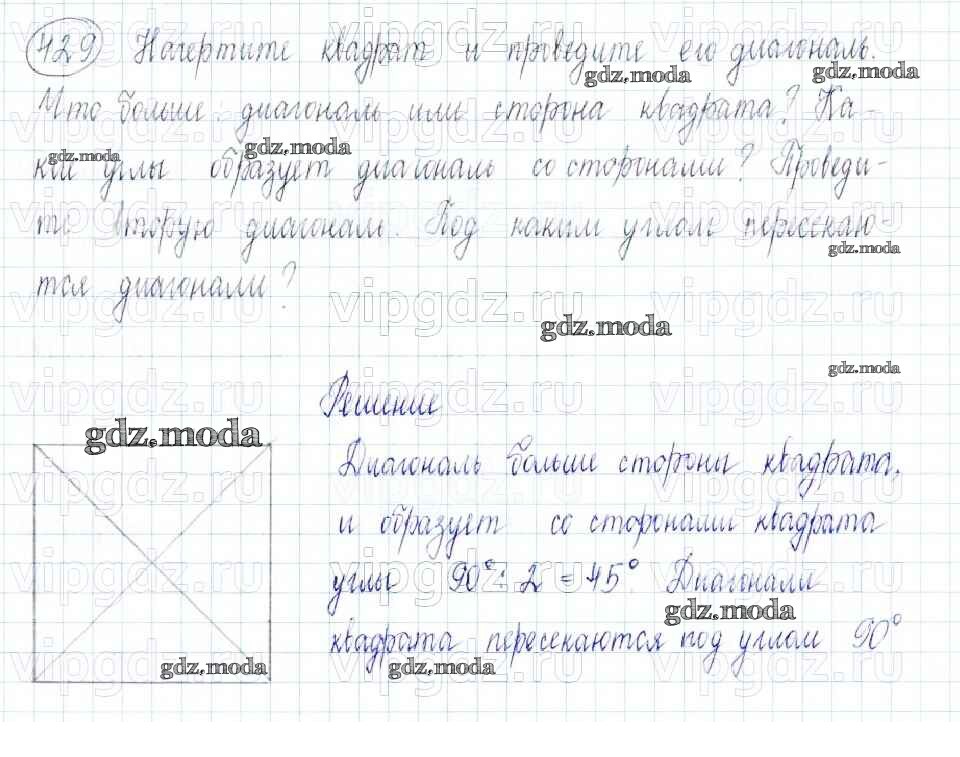 429 Начертите квадрат и проведите его диагональ.
Что больше: диагональ или сторона квадрата? Ка-
кие углы образует диагональ со сторонами? Проведи-
те вторую диагональ. Под каким углом пересекаю-
тся диагонали?
Решение
Диагональ больше стороны квадрата,
и образует со сторонами квадрата
углы 90°: 2 = 45°. Диагонали
квадрата пересекаются под углом 90°
vipgdz.ru
gdz.moda